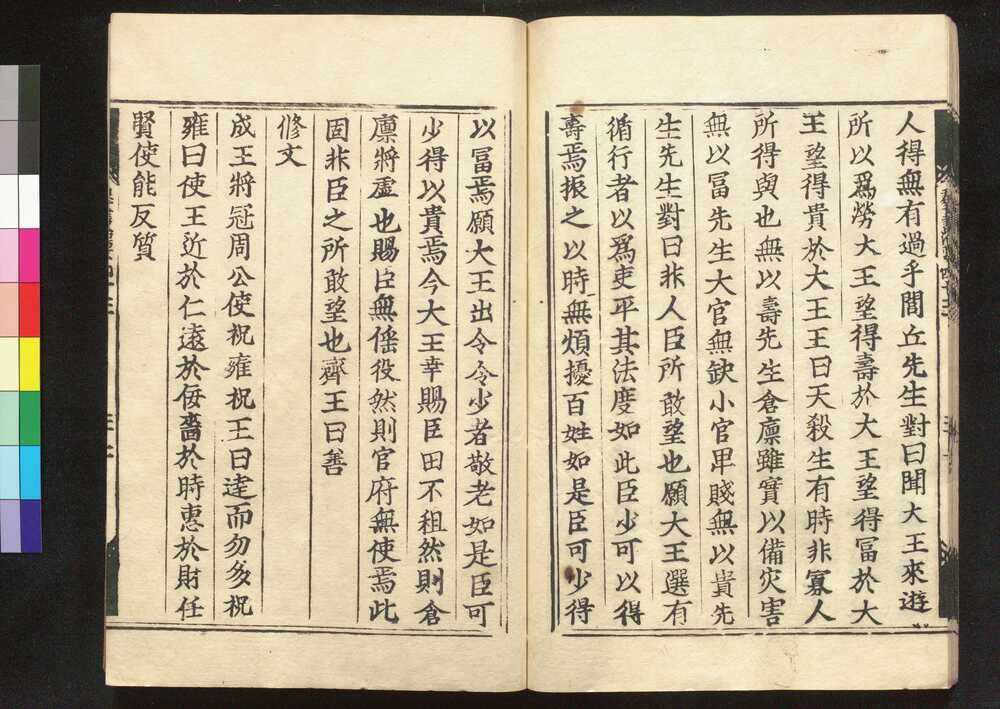 人得無有過乎閭丘先生對曰聞大王來遊
所以爲勞大王望得壽於大王望得冨於大
王望得貴於大王王曰天殺生有時非寡人
所得與也無以壽先生倉廪雖實以備灾害
無以冨先生大官無缺小官卑賤無以貴先
生先生對曰非人臣所敢望也願大王選有
循行者以爲吏平其法度如此臣少可以得
壽焉振之以時無煩擾百姓如是臣可少得
以冨焉願大王出令令少者敬老如是臣可
少得以貴焉今大王幸賜臣田不租然則倉
廪將虛也賜臣無徭役然則官府無使焉此
固非臣之所敢望也齊王曰善
修文
成王將冠周公使祝雍祝王曰逹而勿多祝
雍曰使王近於仁遠於佞嗇於時惠於財任
賢使能反質